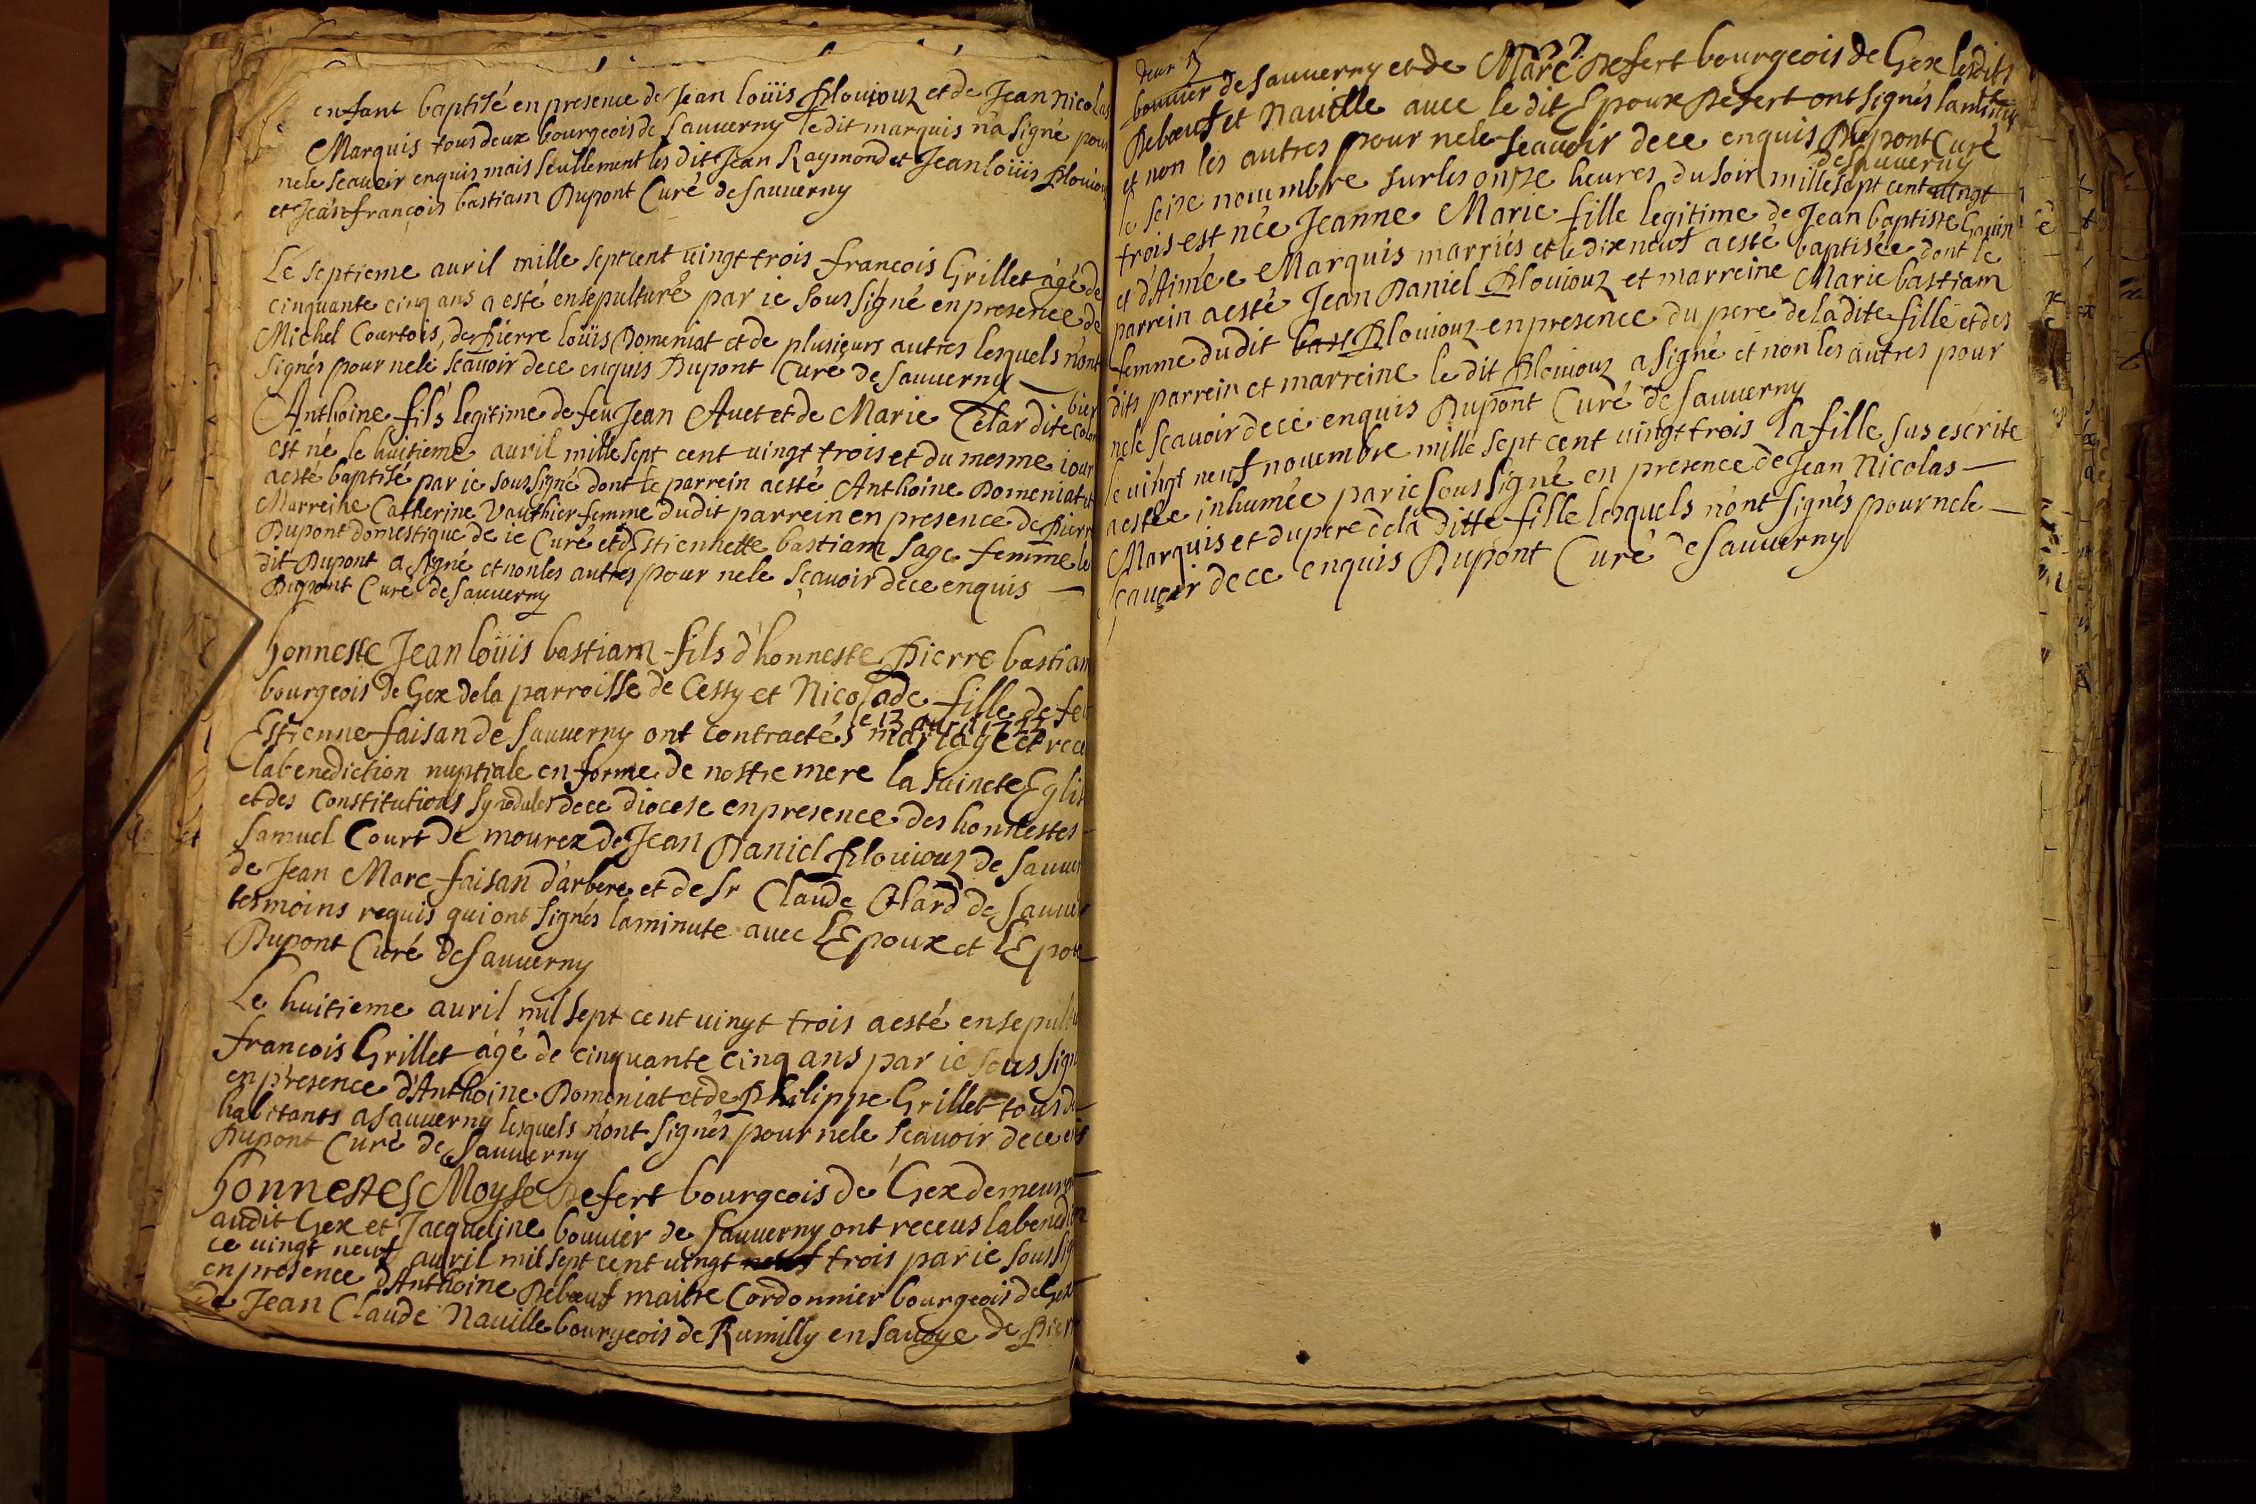 enfant baptisé en presence de Jean loüis Plouiouz et de Jean Nicolas
Marquis tous deux bourgeois de sauuerny le dit marquis n'a signé pour
ne le scauoir enquis mais seullement les dit Jean Raymond et Jean loüis Plouiouz
et Jean françois bastiam Dupont Curé de sauuerny
Le septieme auril mille sept cent uingt trois francois Grillet àgé de
cinquante cinq ans a esté ensepulturé par ie sous signé en presence de
Michel Courtois, de Pierre loüis Domeniat et de plusieurs autres lesquels n'ont
signés pour ne le scauoir de ce enquis Dupont Curé de sauuerny
Anthoine fils legitime de feu Jean Auet et de Marie Celar dite
est né le huitieme auril mille sept cent uingt trois et du mesme iour
a esté baptisé par ie sous signé dont le parrein a esté Anthoine Domeniat et
Marreine Catherine Vauthier femme dudit parrein en presence de Pierre
Dupont domestique de ie Curé et d'Estiennette bastiam sage femme le
dit Dupont a signé et non les autres pour ne le sçauoir de ce enquis
Dupont Curé de sauuerny
honneste Jean loüis bastiam fils d'honneste Pierre bastiam
bourgeois de Gex de la parroisse de Cessy et Nicolade fille de feu
le 13 auril 1723
Estienne faisan de sauuerny ont contractés mariage et rece
la benediction nuptiale en forme de nostre mere la saincte Eglis
et des Constitutions synodales de ce diocese en presence des honnestes
samuel Court de mourex de Jean Daniel Plouiouz de sauuer
de Jean Marc faisan d'arbere et de sr Claude Olard de sauuer
tesmoins requis qui ont signés la minute auec l'Epoux et l'Epou
Dupont Curé de sauuerny
Le huitieme auril mil sept cent uingt trois a esté ensepultu
francois Grillet àgé de cinquante cinq ans par ie sous sign
en presence d'Anthoine Domeniat et de Philippe Grillet tous de
habitants a sauuerny lesquels n'ont signés pour ne le scauoir de ce en
Dupont Curé de sauuerny
honnestes Moyse Defert bourgeois de Gex demeura
audit Gex et Jacqueline bouuier de sauuerny ont receus la benedi
ce uingt neuf auril mil sept cent uingt neuf trois par ie sous sig
en presence d'Anthoine Debœuf maitre Cordonnier bourgeois de Gex
de Jean Claude Nauille bourgeois de Rumilly en sauoye de Pierr
bouuier de sauuerny et de Marc Defert bourgeois de Gex lesdits
Debœuf et Nauille auec le dit Epoux Defert ont signés la minute
et non les autres pour ne le seauoir de ce enquis Dupont Curé
de sauuerny
le seize nouembre sur les onze heures du soir mille sept cent uingt
trois est née Jeanne Marie fille legitime de Jean baptiste Gouin
et d'Aimée Marquis marriés et le dix neuf a esté baptisée dont le
parrein a esté Jean Daniel Plouiouz et marreine Marie bastiam
femme du dit bast Plouiouz en presence du pere de la dite fille et des
dits parrein et marreine le dit Plouiouz a signé et non les autres pour
ne le scauoir de ce enquis Dupont Curé de sauuerny
le uingt neuf nouembre mille sept cent uingt trois la fille sus escrite
a estée inhumée par ie sous signé en presence de Jean Nicolas
Marquis et du pere de la ditte fille lesquels n'ont signés pour ne le
scauoir de ce enquis Dupont Curé de sauuerny